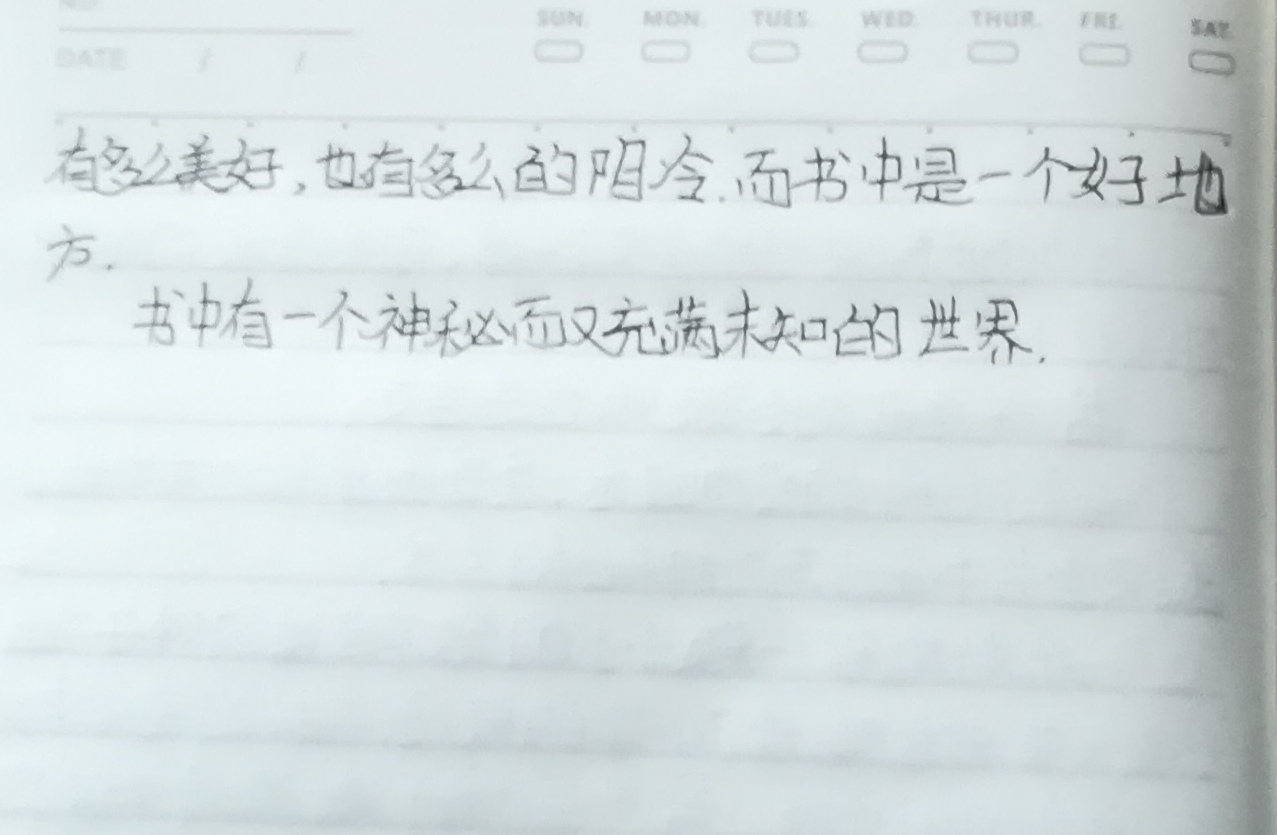 SUN. MON. TUES. WED. THUR. FRI. SAT.
DATE / /
有多么美好,也有多么的阴冷.而书中是一个好地
方.
书中有一个神秘而又充满未知的世界.